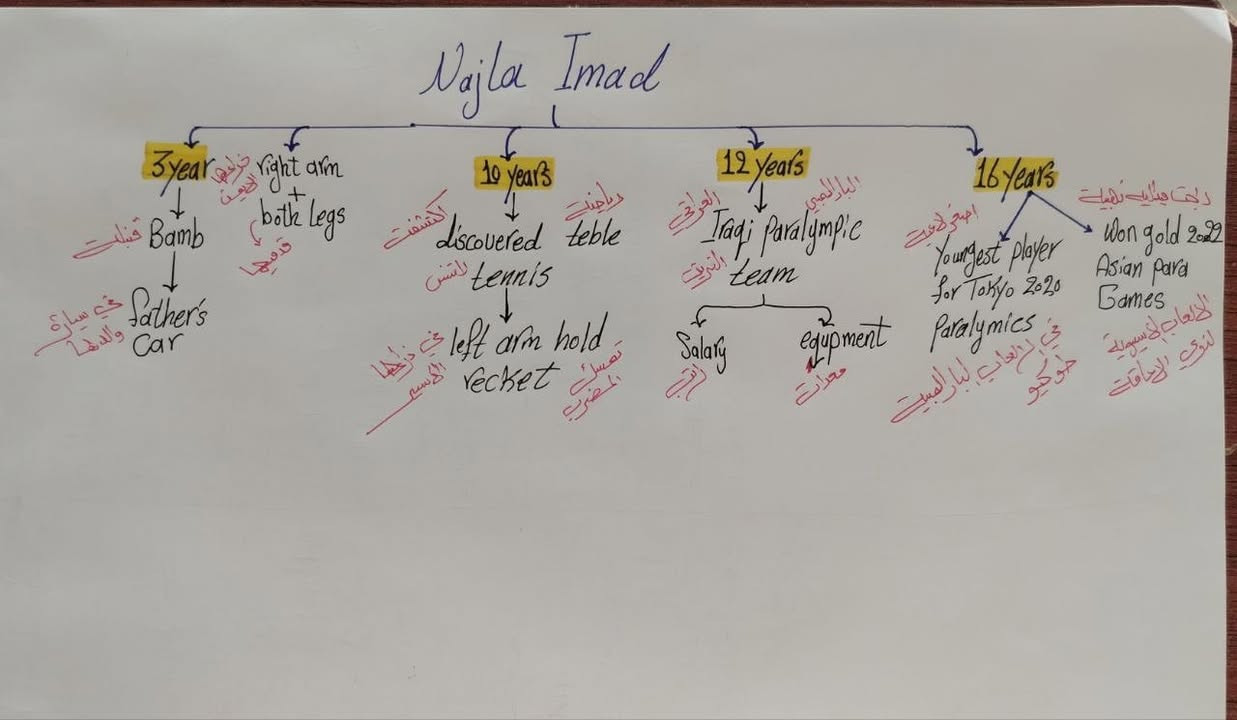 Najla Imad
3 year
Bamb
قنبلة
father's
car
في سيارة
والدها
right arm
+
both legs
ذراعها
الايمن
قدميها
10 years
discovered teble
tennis
اكتشفت
رياضة
التنس
left arm hold
recket
في ذراعها
الايسر
تمسك
المضرب
12 years
Iraqi paralympic
team
العراقي
البارالمبي
الفريق
Salary
راتب
equpment
معدات
16 years
Youngest player
for Tokyo 2020
paralymics
اصغر لاعبة
في العاب البارالمبية
طوكيو
Won gold 2022
Asian para
Games
ذهبية
الالعاب الاسيوية
لذوي الاعاقة